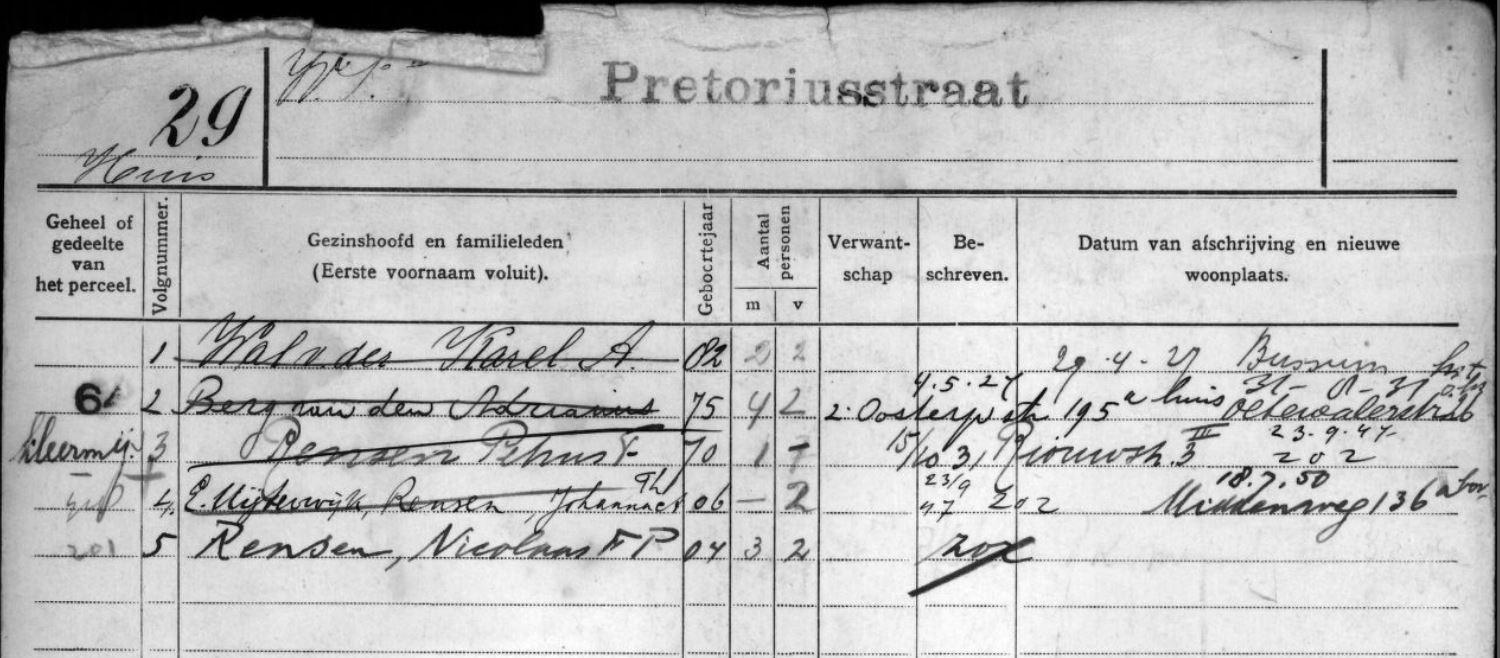 Pretoriusstraat
29
Huis
Geheel of gedeelte van het perceel.
Volgnummer.
Gezinshoofd en familieleden
(Eerste voornaam voluit).
Geboortejaar
Aantal personen
m v
Verwant-
schap
Be-
schreven.
Datum van afschrijving en nieuwe
woonplaats.
1 Wal v der Karel A. 02 2 2 29.4.27 Bussum
4.5.27 31-8-31
6 2 Berg van den Adrianus 75 4 2 2 Oosterp str 195 a huis
15/10 31 III 23.9.47
3 Rensen Petrus F 70 1 - Riouwstr. 3 202
23/9 18.7.50
4. E. Uijterwijk, Rensen, Johanna Th 06 - 2 47 202 Middenweg 136
201 5 Rensen, Nicolaas F P 04 3 2 202